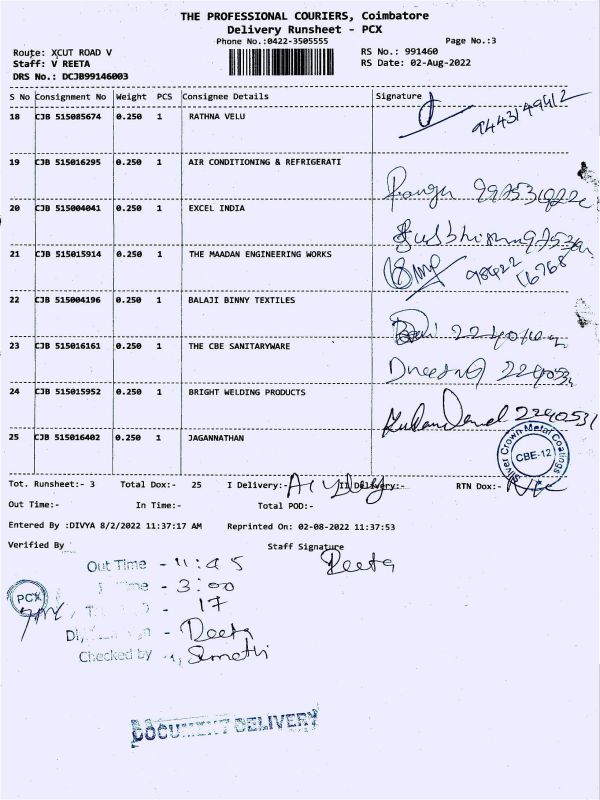 THE PROFESSIONAL COURIERS, Coimbatore
Delivery Runsheet - PCX
Phone No.:0422-3505555
Page No.:3
Route: XCUT ROAD V
RS No.: 991460
Staff: V REETA
RS Date: 02-Aug-2022
DRS No.: DCJB99146003
S No Consignment No Weight PCS Consignee Details Signature
18 CJB 515085674 0.250 1 RATHNA VELU
9443149412
19 CJB 515016295 0.250 1 AIR CONDITIONING & REFRIGERATI
20 CJB 515004041 0.250 1 EXCEL INDIA
21 CJB 515015914 0.250 1 THE MAADAN ENGINEERING WORKS
98422
16768
22 CJB 515004196 0.250 1 BALAJI BINNY TEXTILES
23 CJB 515016161 0.250 1 THE CBE SANITARYWARE
24 CJB 515015952 0.250 1 BRIGHT WELDING PRODUCTS
2240531
25 CJB 515016402 0.250 1 JAGANNATHAN
Silver Crown Metal Coatings
CBE-12
Tot. Runsheet:- 3 Total Dox:- 25 I Delivery:- II Delivery:- RTN Dox:-
Out Time:- In Time:- Total POD:-
Entered By :DIVYA 8/2/2022 11:37:17 AM Reprinted On: 02-08-2022 11:37:53
Verified By Staff Signature
Reeta
Out Time - 11:45
Time - 3:00
PCX
- 17
- Reeta
Checked by Sumathi
DOCUMENT DELIVERY